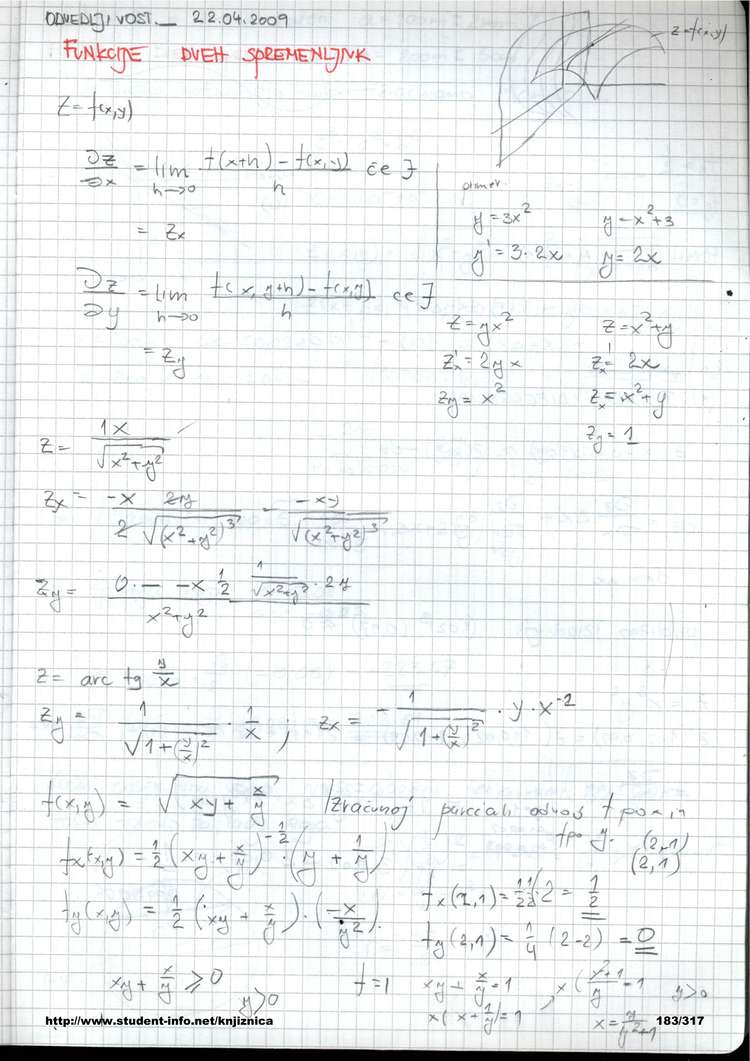 ODVEDLJIVOST._ 22.04.2009
FUNKCIJE DVEH SPREMENLJIVK
z=f(x,y)
z=f(x,y)
∂z/∂x = lim h→0 (f(x+h)-f(x,y))/h če ∃
= zx
primer.
y=3x² y-x²+3
y'=3·2x y=2x
∂z/∂y = lim h→0 (f(x, y+h)-f(x,y))/h če ∃
= zy
z=yx² z=x²+y
z'x=2yx z'x= 2x
zy= x² zx=x²+y
zy=1
z= 1x/√(x²+y²)
zx= -x 2y/(2√(x²+y²)³) - -xy/√(x²+y²)³
zy= (0·— -x 1/2 1/√(x²+y²)·2y)/(x²+y²)
z= arc tg y/x
zy= 1/√(1+(y/x)²) · 1/x ; zx= -1/√(1+(y/x)²) · y·x⁻²
f(x,y) = √(xy+x/y) Izračunaj parciali odvod f po x in
f po y. (2,1)
(2,1)
fx(x,y)=1/2(xy+x/y)^(-1/2)·(y+1/y)
fx(2,1)=1/2·1/2·2=1/2
fy(x,y)=1/2(xy+x/y)·(-x/y²).
fy(2,1)=1/4(2-2)=0
xy+x/y≥0 f=1 xy+x/y=1 y>0
y>0 x(x+1/y)=1 x=y/(y²+1)
http://www.student-info.net/knjiznica 183/317